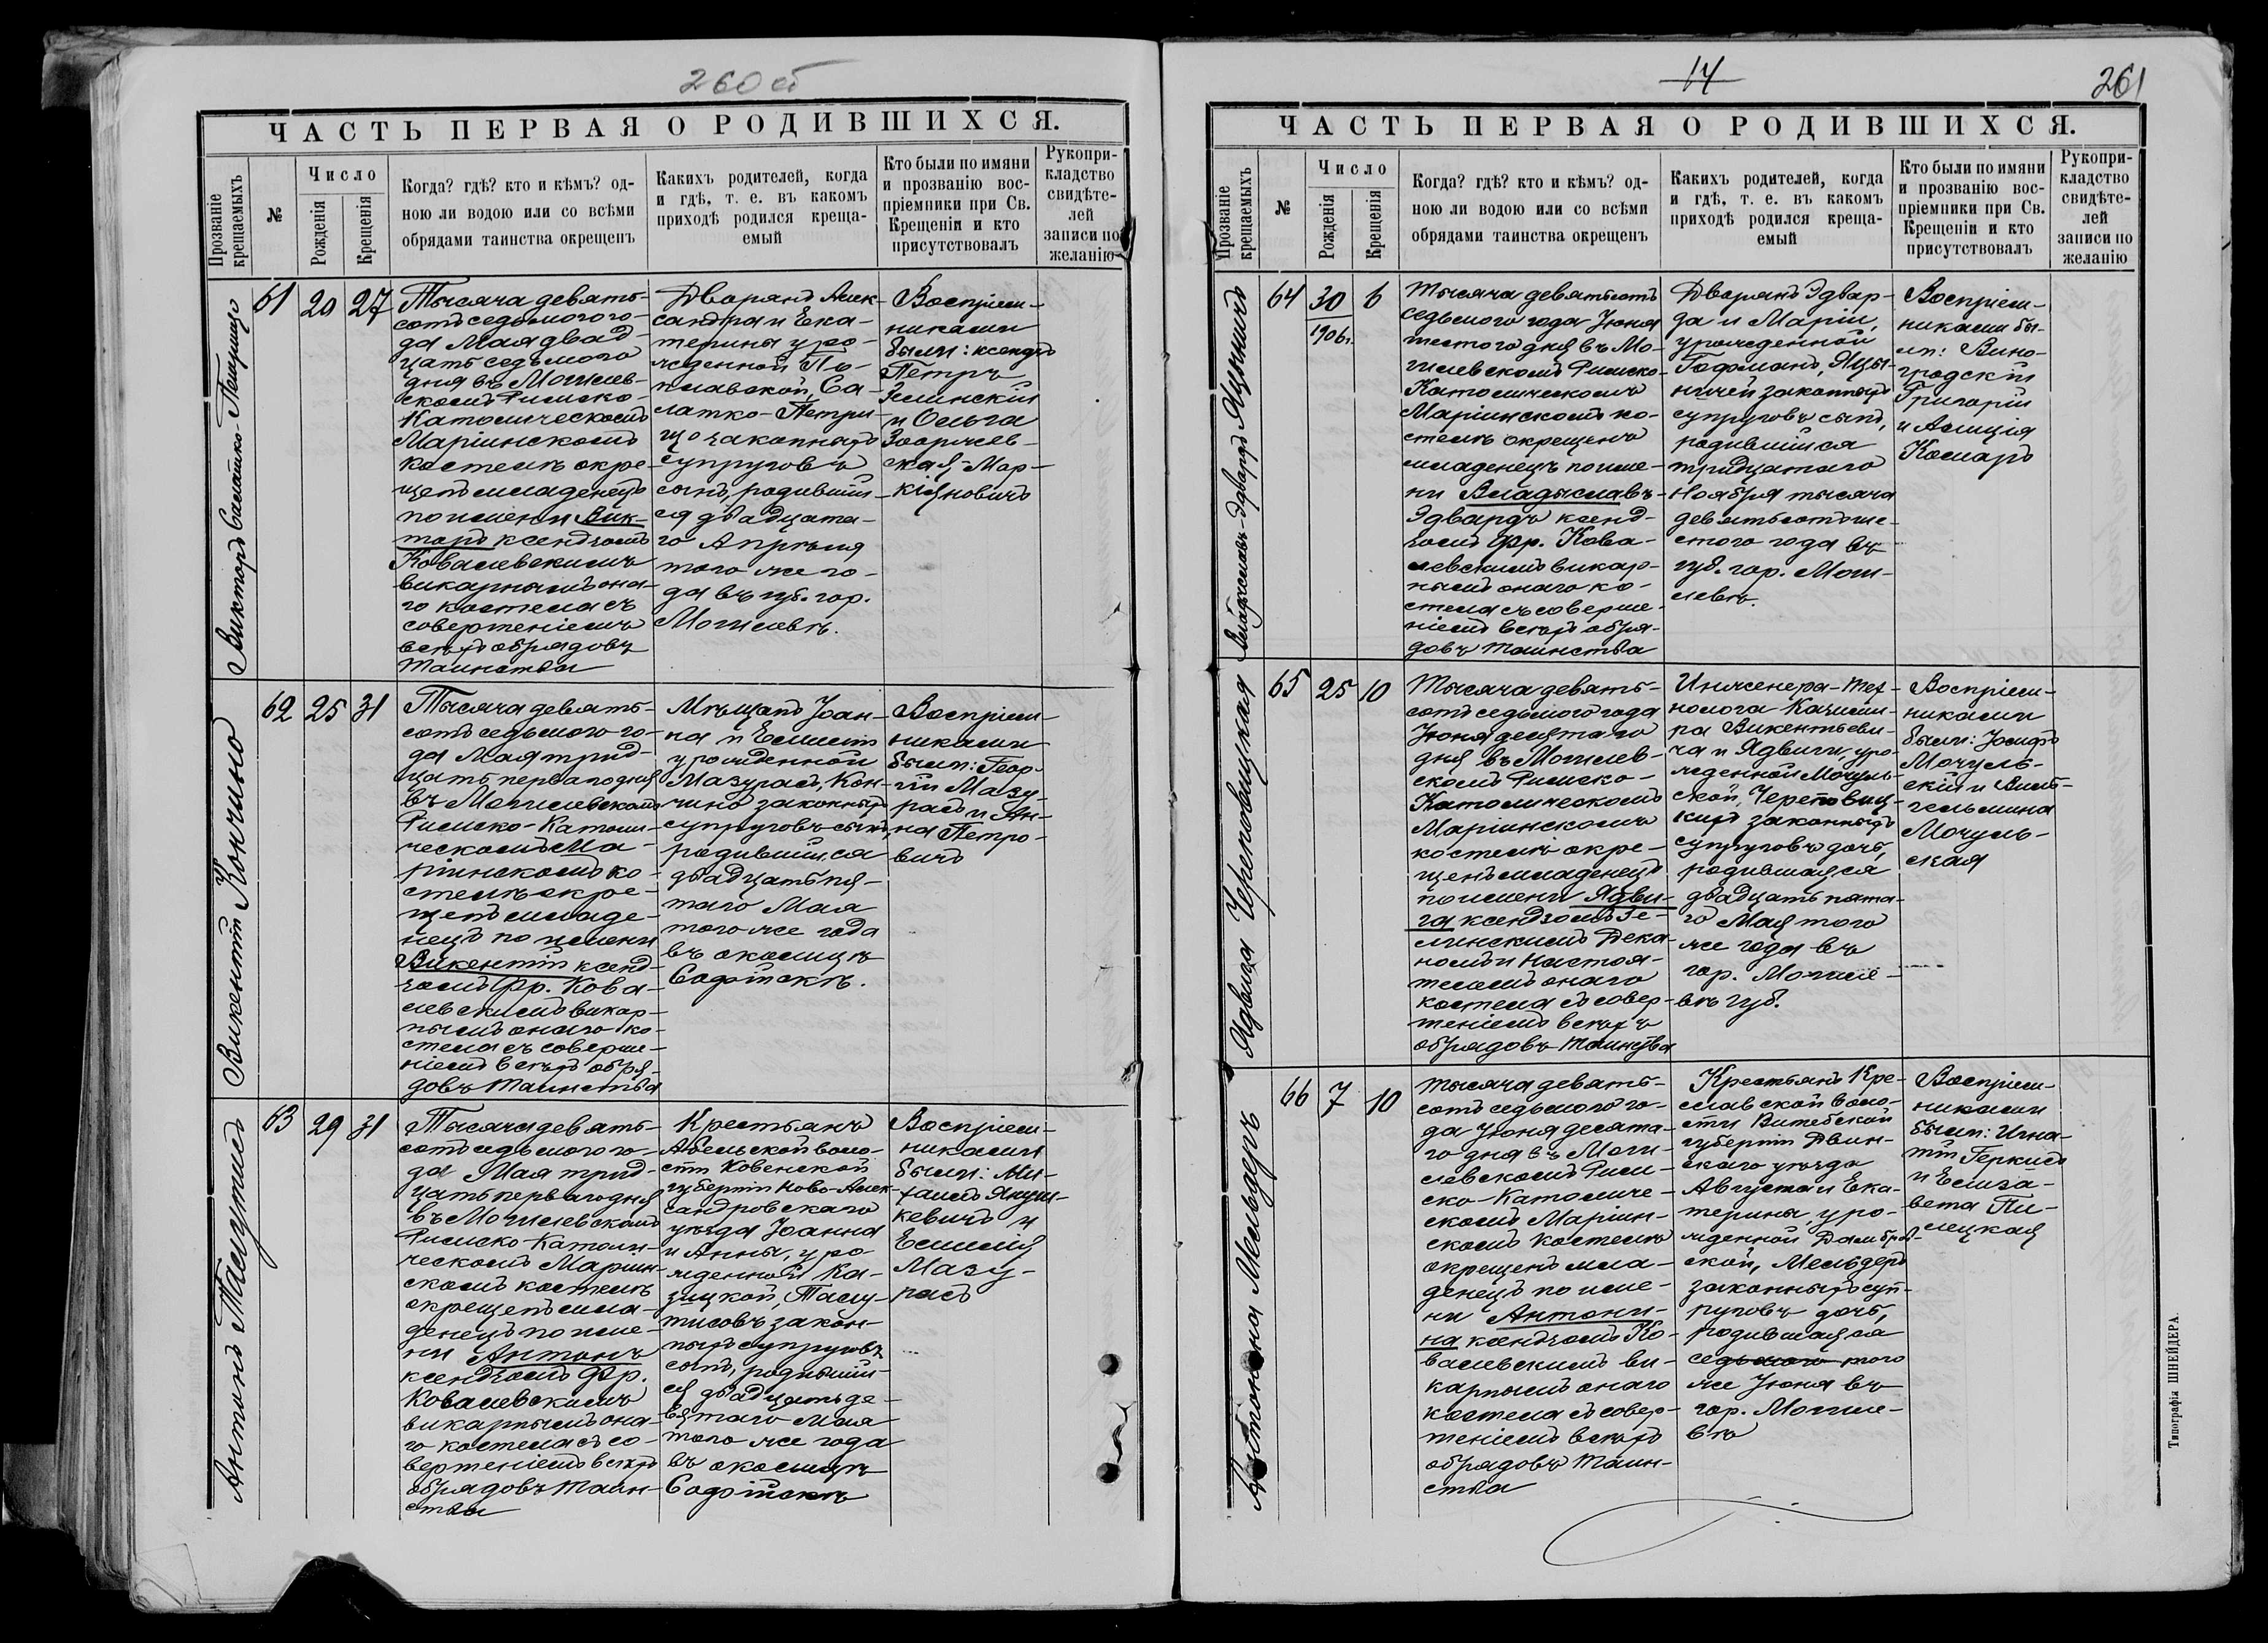 260 об
ЧАСТЬ ПЕРВАЯ О РОДИВШИХСЯ.
Прозваніе крещаемыхъ
№
Число
Рожденія
Крещенія
Когда? гдѣ? кто и кѣмъ? од-
ною ли водою или со всѣми
обрядами таинства окрещенъ
Какихъ родителей, когда
и гдѣ, т. е. въ какомъ
приходѣ родился креща-
емый
Кто были по имяни
и прозванію вос-
пріемники при Св.
Крещеніи и кто
присутствовалъ
Рукопри-
кладство
свидѣте-
лей
записи по
желанію
Викторъ Салатко-Петрище
61
20
27
Тысяча девять-
сотъ седьмого го-
да Мая двад-
цать седьмого
дня въ Могилев-
скомъ Римско-
Католическомъ
Маріинскомъ
костелѣ окре-
щенъ младенецъ
по имени Вик-
торъ ксендзомъ
Ковалевскимъ
викарнымъ она-
го костела съ
совершеніемъ
всѣхъ обрядовъ
Таинства
Дворянъ Алек-
сандра и Ека-
терины уро-
жденной По-
плавской, Са-
латко-Петри-
що законныхъ
супруговъ
сынъ, родивший-
ся двадцата-
го Апрѣля
того же го-
да въ губ. гор.
Могилевѣ.
Воспріем-
никами
были: ксендзъ
Петръ
Зелинскій
и Ольга
-Мар-
кіяновичъ
Викентій Кончино
62
25
31
Тысяча девять-
сотъ седьмого го-
да Мая трид-
цать перваго дня
въ Могилевскомъ
Римско-Католи-
ческомъ Ма-
ріинскомъ ко-
стелѣ окре-
щенъ младе-
нецъ по имени
Викентій ксенд-
зомъ Фр. Кова-
левскимъ викар-
нымъ онаго ко-
стела съ соверше-
ніемъ всѣхъ обря-
довъ Таинства
Мѣщанъ Іоан-
на и Емиліи
урожденной
Мазурасъ, Кон-
чино законныхъ
супруговъ сынъ,
родившийся
двадцать пя-
таго Мая
того же года
въ околицѣ
Софійскѣ.
Воспріем-
никами
были: Геор-
гій Мазу-
расъ и Ан-
на Петро-
вичъ
Антонъ Талутисъ
63
29
31
Тысяча девять-
сотъ седьмого го-
да Мая трид-
цать перваго дня
въ Могилевскомъ
Римско-Католи-
ческомъ Маріин-
скомъ костелѣ
окрещенъ мла-
денецъ по име-
ни Антонъ
ксендзомъ Фр.
Ковалевскимъ
викарнымъ она-
го костела съ со-
вершеніемъ всѣхъ
обрядовъ Таин-
ства
Крестьянъ
Абельской воло-
сти Ковенской
губерніи Ново-Алек-
сандровскаго
уѣзда Іоанна
и Анны, уро-
жденной Ка-
зицкой,
законныхъ супруговъ
сынъ, родивший-
ся двадцать де-
вятаго Мая
того же года
въ околицѣ
Софійскѣ
Воспріем-
никами
были: Ми-
хаилъ Януш-
кевичъ и
Емилія
Мазу-
расъ
14
261
ЧАСТЬ ПЕРВАЯ О РОДИВШИХСЯ.
Прозваніе крещаемыхъ
№
Число
Рожденія
Крещенія
Когда? гдѣ? кто и кѣмъ? од-
ною ли водою или со всѣми
обрядами таинства окрещенъ
Какихъ родителей, когда
и гдѣ, т. е. въ какомъ
приходѣ родился креща-
емый
Кто были по имяни
и прозванію вос-
пріемники при Св.
Крещеніи и кто
присутствовалъ
Рукопри-
кладство
свидѣте-
лей
записи по
желанію
Владиславъ-Эдвардъ Яцыничъ
64
30
1906г.
6
Тысяча девятьсотъ
седьмого года Іюня
шестого дня въ Мо-
гилевскомъ Римско-
Католическомъ
Маріинскомъ ко-
стелѣ окрещенъ
младенецъ по име-
ни Владыславъ-
Эдвардъ ксенд-
зомъ Фр. Кова-
левскимъ викар-
нымъ онаго ко-
стела съ соверше-
ніемъ всѣхъ обря-
довъ Таинства
Дворянъ Эдвар-
да и Маріи,
урожденной
Гофманъ, Яцы-
ничей законныхъ
супруговъ сынъ,
родившийся
тридцатаго
Ноября тысяча
девятьсотъ ше-
стого года въ
губ. гор. Моги-
левѣ.
Воспріем-
никами бы-
ли: Вино-
градскій
Григорій
и Алиція
Комаръ
Ядвига Череповицкая
65
25
10
Тысяча девять-
сотъ седьмого года
Іюня десятаго
дня въ Могилев-
скомъ Римско-
Католическомъ
Маріинскомъ
костелѣ окре-
щенъ младенецъ
по имени Ядви-
га ксендзомъ Зе-
линскимъ Дека-
номъ и Настоя-
телемъ онаго
костела съ совер-
шеніемъ всѣхъ
обрядовъ Таинства
Инженера-Тех-
нолога Казими-
ра Викентьеви-
ча и Ядвиги, уро-
жденной Мочуль-
ской, Череповиц-
кихъ законныхъ
супруговъ дочь,
родившаяся
двадцать пята-
го Мая того
же года въ
гор. Могиле-
вѣ губ.
Воспріем-
никами
были: Іосифъ
Мочуль-
скій и Виль-
гельмина
Мочуль-
ская
Антонина Мельдеръ
66
7
10
Тысяча девять-
сотъ седьмого го-
да Іюня десята-
го дня въ Моги-
левскомъ Рим-
ско-Католиче-
скомъ Маріин-
скомъ костелѣ
окрещенъ мла-
денецъ по име-
ни Антони-
на ксендзомъ Ко-
валевскимъ ви-
карнымъ онаго
костела съ совер-
шеніемъ всѣхъ
обрядовъ Таин-
ства
Крестьянъ Кре-
славской воло-
сти Витебской
губерніи Двин-
скаго уѣзда
Августа и Ека-
терины, уро-
жденной Дамбров-
ской, Мельдеръ
законныхъ суп-
руговъ дочь,
родившаяся
седьмого того
же Іюня въ
гор. Могиле-
вѣ
Воспріем-
никами
были: Игна-
тій Геркисъ
и Елиза-
вета Пи-
лецкая
Типографія ШНЕЙДЕРА